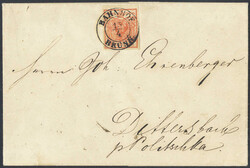 BAHNHOF
BRÜNN
Herrn Joh. Ehrenberger
Dittersbach
p Politschka